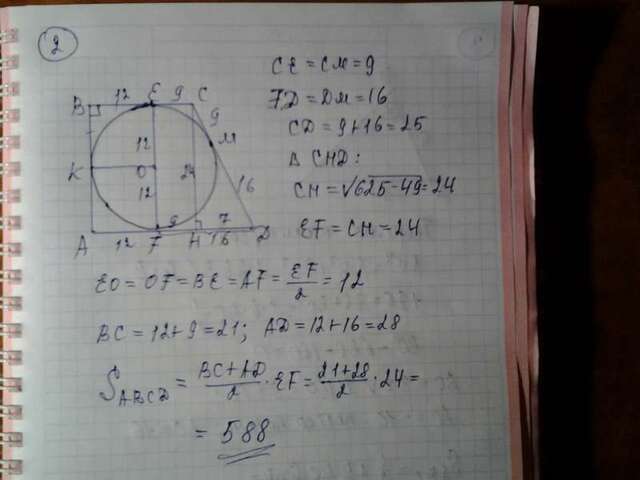 2
CE = CM = 9
FD = DM = 16
CD = 9+16 = 25
Δ CHD:
CH = √625-49 = 24
EF = CH = 24
B 12 E 9 C
9
M
12
K O 24
12 16
9 7
A 12 F H 16 D
EO = OF = BE = AF = EF/2 = 12
BC = 12+9 = 21; AD = 12+16 = 28
S ABCD = BC+AD/2 · EF = 21+28/2 · 24 =
= 588